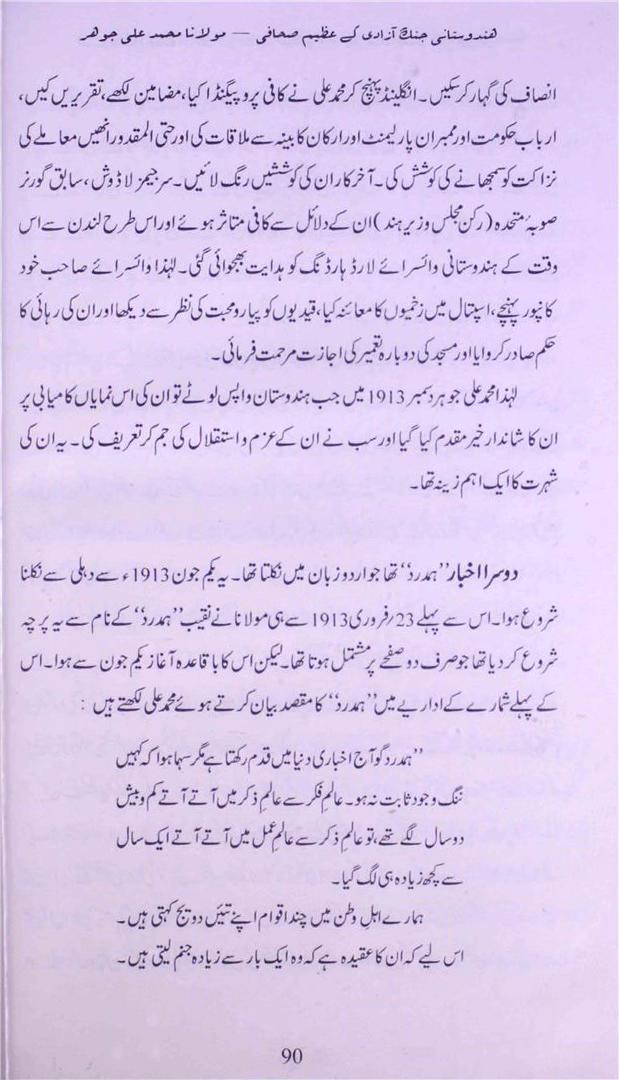 ہندوستانی جنگ آزادی کے عظیم صحافی — مولانا محمد علی جوہر
انصاف کی گہار کرسکیں۔ انگلینڈ پہنچ کر محمد علی نے کافی پروپیگنڈا کیا، مضامین لکھے، تقریریں کیں،
ارباب حکومت اور ممبران پارلیمنٹ اور ارکان کابینہ سے ملاقات کی اور حتی المقدور انھیں معاملے کی
نزاکت کو سمجھانے کی کوشش کی۔ آخر کار ان کی کوششیں رنگ لائیں۔ سر جیمز لاڈوش، سابق گورنر
صوبۂ متحدہ (رکن مجلس وزیر ہند) ان کے دلائل سے کافی متاثر ہوئے اور اس طرح لندن سے اس
وقت کے ہندوستانی وائسرائے لارڈ ہارڈنگ کو ہدایت بھجوائی گئی۔ لہٰذا وائسرائے صاحب خود
کانپور پہنچے، اسپتال میں زخمیوں کا معائنہ کیا، قیدیوں کو پیار و محبت کی نظر سے دیکھا اور ان کی رہائی کا
حکم صادر کروایا اور مسجد کی دوبارہ تعمیر کی اجازت مرحمت فرمائی۔
لہٰذا محمد علی جوہر دسمبر 1913 میں جب ہندوستان واپس لوٹے تو ان کی اس نمایاں کامیابی پر
ان کا شاندار خیر مقدم کیا گیا اور سب نے ان کے عزم و استقلال کی جم کر تعریف کی۔ یہ ان کی
شہرت کا ایک اہم زینہ تھا۔
دوسرا اخبار ”ہمدرد“ تھا جو اردو زبان میں نکلتا تھا۔ یہ یکم جون 1913ء سے دہلی سے نکلنا
شروع ہوا۔ اس سے پہلے 23/فروری 1913 سے ہی مولانا نے نقیب ”ہمدرد“ کے نام سے یہ پرچہ
شروع کر دیا تھا جو صرف دو صفحے پر مشتمل ہوتا تھا۔ لیکن اس کا باقاعدہ آغاز یکم جون سے ہوا۔ اس
کے پہلے شمارے کے اداریے میں ”ہمدرد“ کا مقصد بیان کرتے ہوئے محمد علی لکھتے ہیں :
”ہمدرد گو آج اخباری دنیا میں قدم رکھتا ہے مگر سہما ہوا کہ کہیں
ننگ وجود ثابت نہ ہو۔ عالمِ فکر سے عالمِ ذکر میں آتے آتے کم و بیش
دو سال لگے تھے، تو عالمِ ذکر سے عالمِ عمل میں آتے آتے ایک سال
سے کچھ زیادہ ہی لگ گیا۔
ہمارے اہلِ وطن میں چند اقوام اپنے تئیں دویج کہتی ہیں۔
اس لیے کہ ان کا عقیدہ ہے کہ وہ ایک بار سے زیادہ جنم لیتی ہیں۔
90